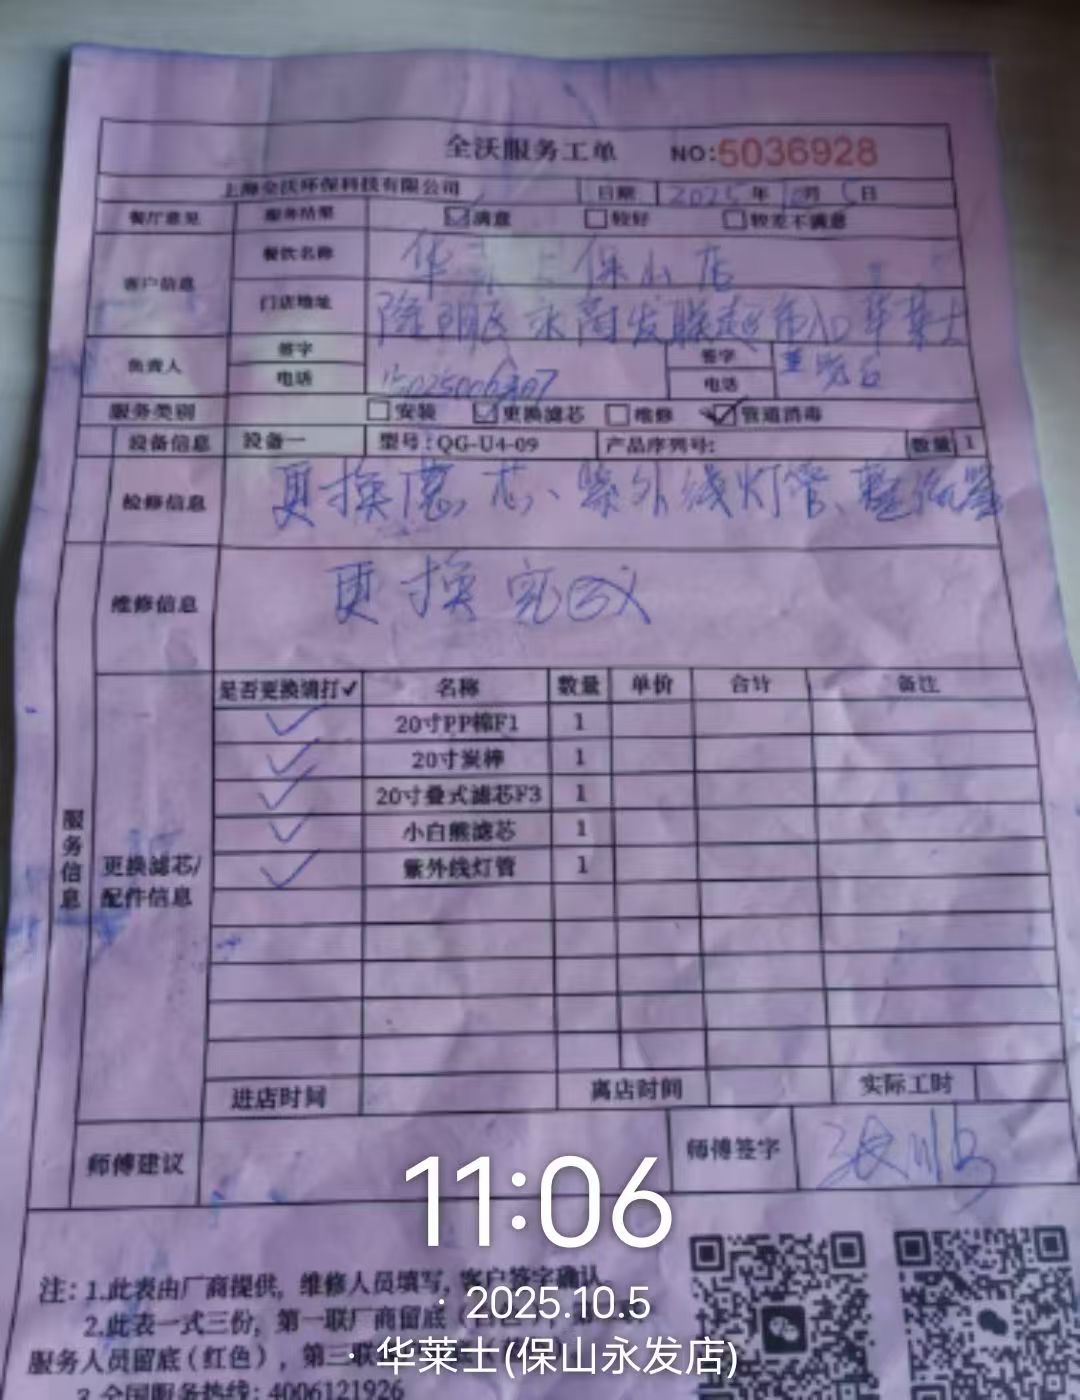 全沃服务工单 NO:5036928
上海全沃环保科技有限公司 日期 2025年10月5日
餐厅意见 服务结果 满意 较好 较差不满意
客户信息 餐饮名称 华莱士保山店
门店地址 隆阳区永尚发联超市入口华莱士
负责人 签字 签字
电话 电话
服务类别 安装 更换滤芯 维修 管道消毒
设备信息 设备一 型号:QG-U4-09 产品序列号: 数量 1
检修信息 更换滤芯、紫外线灯管、整流器
维修信息 更换完
是否更换请打✓ 名称 数量 单价 合计 备注
✓ 20寸PP棉F1 1
✓ 20寸炭棒 1
✓ 20寸叠式滤芯F3 1
✓ 小白熊滤芯 1
✓ 紫外线灯管 1
服务信息
更换滤芯/
配件信息
进店时间 离店时间 实际工时
师傅建议 师傅签字
11:06
注: 1.此表由厂商提供, 维修人员填写, 客户签字确认
· 2025.10.5
2.此表一式三份, 第一联厂商留底
服务人员留底(红色), 第三联
· 华莱士(保山永发店)
3.全国服务热线: 4006121926